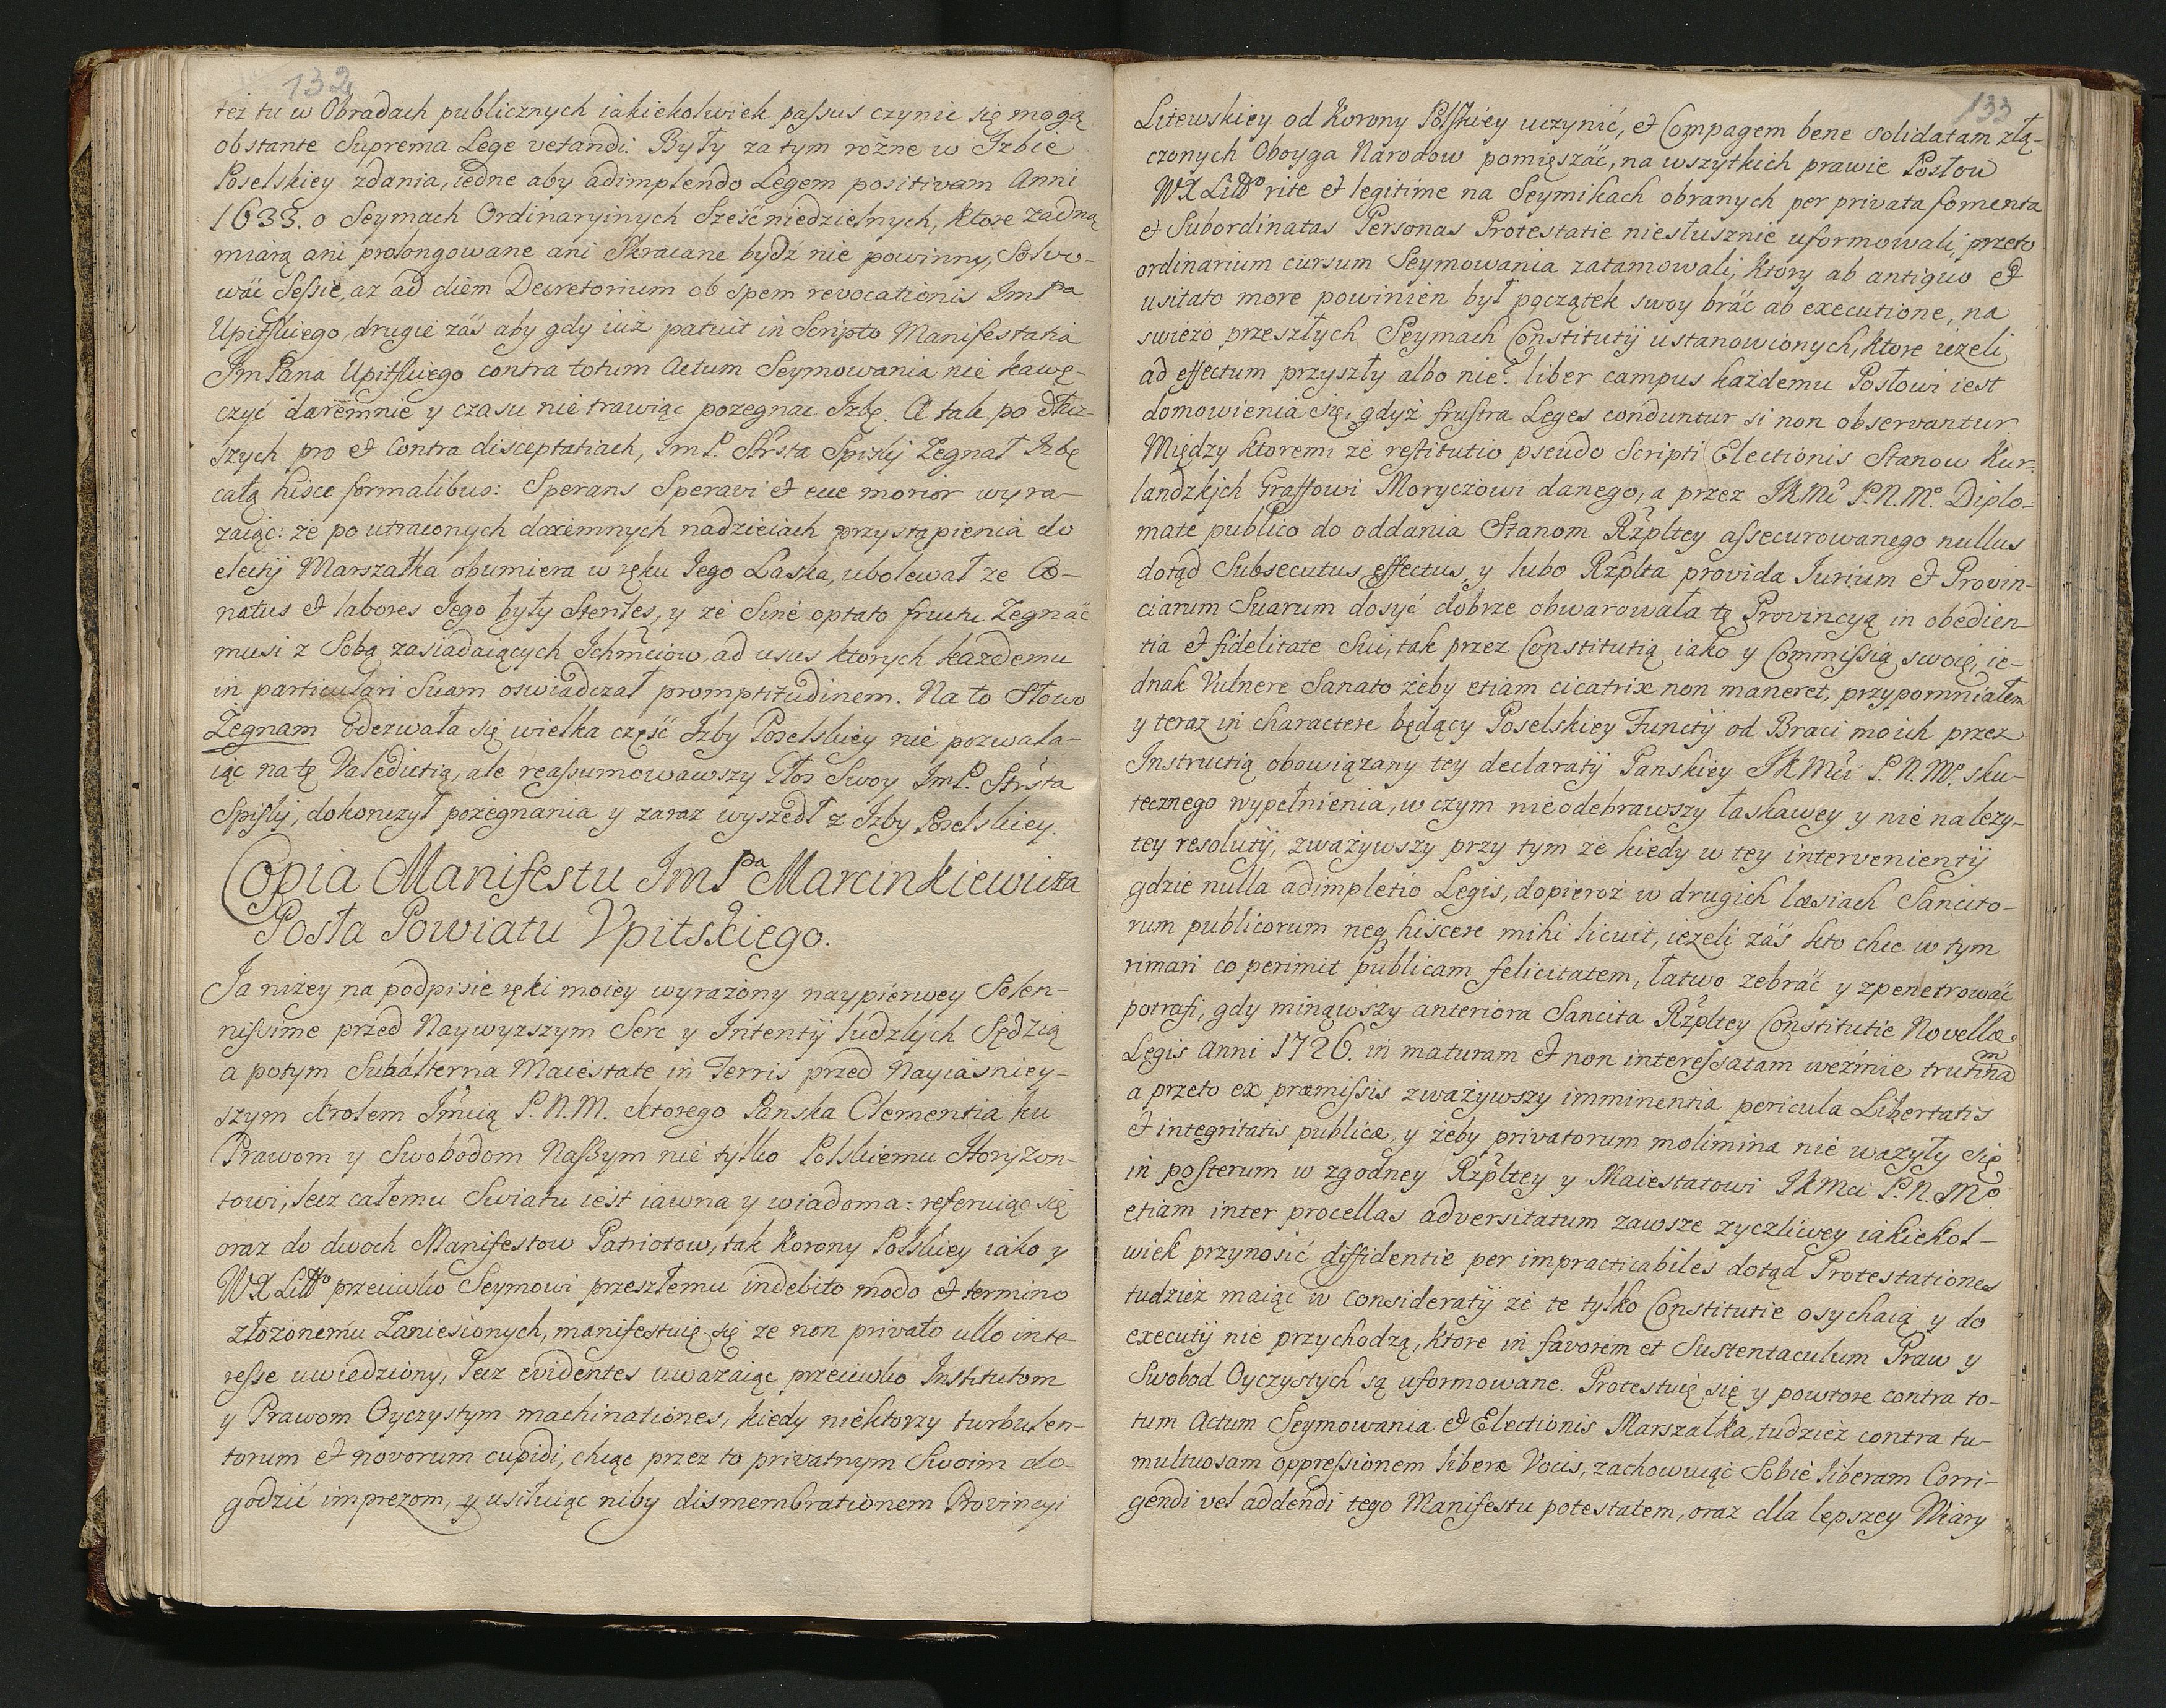 132
też tu w Obradach publicznych iakiekolwiek passus czynic się mogą
obstante Suprema Lege vetandi: Były za tym rożne w Izbie
Poselskiey zdania, iedne aby adimplendo Legem positivam Anni
1633. o Seymach Ordinaryinych Sześćniedzielnych, ktore zadną
miarą ani prolongowane ani Skracane bydź nie powinny, Solwo-
wać Sessie, az ad diem Decretorium ob spem revocationis ImPa
Upitskiego, drugie zás aby gdy iuż patuit in Scripto Manifestatia
ImPana Upitskiego contra totum Actum Seymowania nie kawę-
czyć daremnie y czasu nie trawiąc pozegnac Izbę. A tak po dłuz-
szych pro et contra disceptatiach, Im P. Strsta Spiski Zegnał Izbę
całą hisce formalibus: Sperans Speravi et ecce morior wyra-
zaiąc: że po utraconych daremnych nadzieiach przystąpienia do
elecÿi Marszałka obumiera w ręku Jego Laska, ubolewał ze Co-
natus et labores Jego były Steriles, y że Sine optato fructu Zegnáć
musi z Sobą zasiadaiących Ichmciow, ad usus ktorych każdemu
in particulari Suam oswiadczał promptitudinem. Na to Słowo
Żegnam Odezwała się wielka część Izby Poselskiey nie pozwala-
iąc na tę Valedictią, ale reassumowawszy Głos Swoy ImP. Strsta
Spiski, dokonczył pożegnania y zaraz wyszedł z Izby Poselskiey.
Copia Manifestu ImPa Marcinkiewicza
Posła Powiatu Vpitskiego.
Ja niżey na podpisie ręki moiey wyrażony naypierwey Solen-
nissime przed Naywyzszym Serc y Intentÿ ludzkich Sędzią
a potym Subálterna Maiestate in Terris przed Nayiásniey-
szym Krolem Jmcią P.N.M. ktorego Panska Clementia ku
Prawom y Swobodom Naszym nie tylko Polskiemu Horyzon-
towi, lecz całemu Swiatu iest iawna y wiadoma: referuiąc się
oraz do dwoch Manifestow Patriotow, tak Korony Polskiey iako y
WX Litto przeciwko Seymowi przeszłemu indebito modo et termino
złożonemu Zaniesionych, manifestuię się ze non privato ullo inte-
resse uwiedziony, lecz evidentes uważaiąc przeciwko Institutom
y Prawom Oyczystym machinationes, kiedy niektorzy turbulen-
torum et novorum cupidi, chcąc przez to privatnym Swoim do-
godzić imprezom, y usiłuiąc niby dismembrationem Prowincyi
133
Litewskiey od Korony Polskiey uczynić, et Compagem bene solidatam złą-
czonych Oboyga Narodow pomięszáć, na wszytkich prawie Posłow
WX Litto rite et legitime na Seymikach obranych per privata fomenta
et Subordinatas Personas Protestatie niesłusznie uformowali, przeto
ordinarium cursum Seymowania zatamowali, ktory ab antiquo et
usitato more powinien był początek swoy bráć ab executione, na
swieżo przeszłych Seymach Constitutÿ ustanowionych, ktore ieżeli
ad effectum przyszły albo nie? liber campus każdemu Posłowi iest
domowienia się, gdyż frustra Leges conduntur si non observantur.
Między ktoremi że restitutio pseudo Scripti Electionis Stanow Kur-
landzkich Graffowi Moryczowi danego, a przez JKMć P.N.Mo. Diplo-
mate publico do oddania Stanom Rzpltey assecurowanego nullus
dotąd Subsecutus effectus, y lubo Rzplta provida Jurium et Provin-
ciarum Suarum dosyć dobrze obwarowała tę Prowincyą in obedien-
tia et fidelitate Sui, tak przez Constitutią iako y Commissią swoię, ie-
dnak Vulnere Sanato żeby etiam cicatrix non maneret, przypomniałem
y teraz in charactere będący Poselskiey Functÿ od Braci moich przez
Instructią obowiązany tey declaratÿ Panskiey JKMci P.N.Mo. sku-
tecznego wypełnienia, w czym nieodebrawszy łaskawey y nie nalezy-
tey resolutÿ, zważywszy przy tym że kiedy w tey intervenientÿ
gdzie nulla adimpletio Legis, dopieroż w drugich læsiach Sancito-
rum publicorum neq hiscere mihi licuit, ieżeli zás kto chce w tym
rimari co perimit publicam felicitatem, łatwo zebráć y zpenetrowáć
potrafi, gdy minąwszy anteriora Sancita Rzpltey Constitutie Novellæ
Legis Anni 1726. in maturam et non interessatam weźmie trutinam
a przeto ex præmissis zważywszy imminentia pericula Libertatis
et integritatis publicæ, y żeby privatorum molimina nie ważyły się
in posterum w zgodney Rzpltey y Maiestatowi JKMci P.N.Mo
etiam inter procellas adversitatum zawsze zyczliwey iakiekol-
wiek przynosić diffidentie per impracticabiles dotąd Protestationes
tudzież maiąc w consideratÿ że te tylko Constitutie osychaią y do
executÿ nie przychodzą, ktore in favorem et Sustentaculum Praw y
Swobod Oyczystych są uformowane. Protestuię się y powtore contra to-
tum Actum Seymowania et Electionis Marszałka, tudzież contra tu-
multuosam oppressionem liberæ Vocis, zachowuiąc Sobie liberam Corri-
gendi vel addendi tego Manifestu potestatem, oraz dla lepszey Wiary